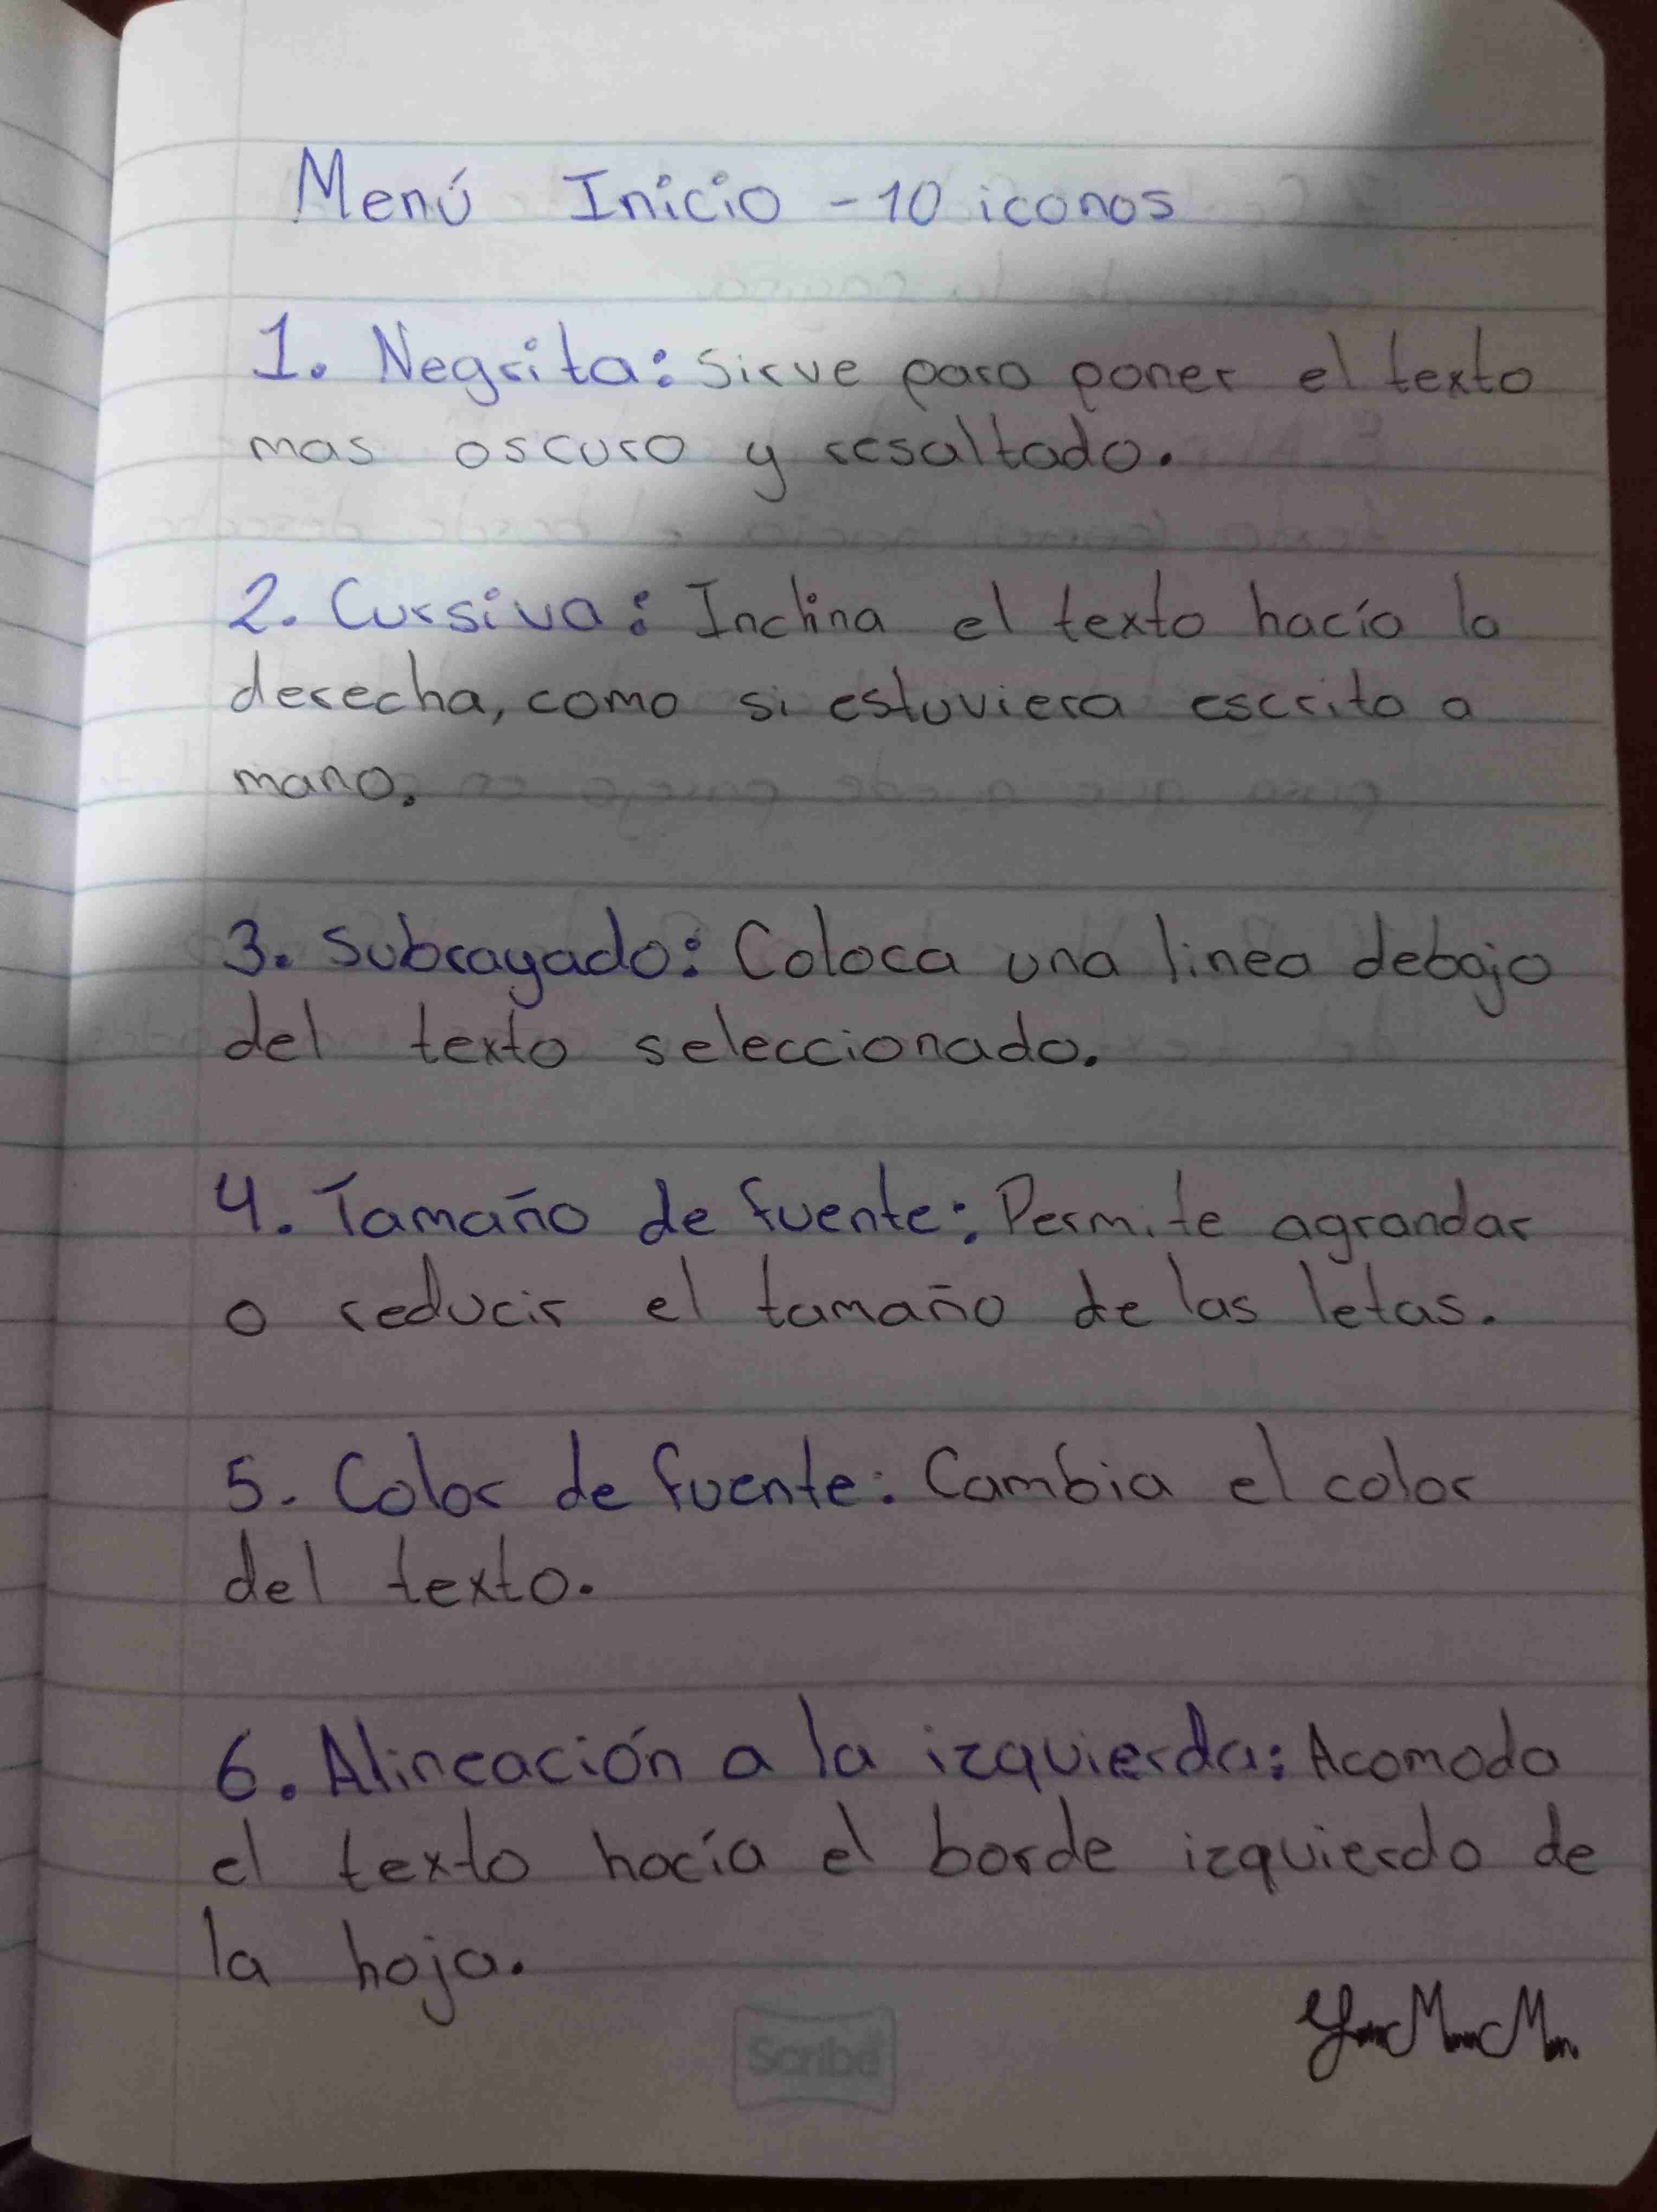 Menú Inicio - 10 iconos
1. Negrita: Sirve para poner el texto
mas oscuro y resaltado.
2. Cursiva: Inclina el texto hacía la
derecha, como si estuviera escrito a
mano.
3. Subrayado: Coloca una linea debajo
del texto seleccionado.
4. Tamaño de fuente: Permite agrandar
o reducir el tamaño de las letas.
5. Color de fuente: Cambia el color
del texto.
6. Alineación a la izquierda: Acomoda
el texto hacía el borde izquierdo de
la hoja.
Scribe